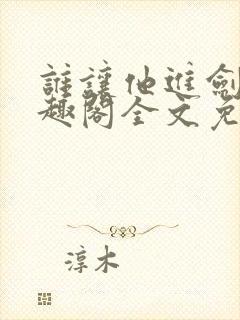 誰讓他進劍
趣閣全文免
淳木